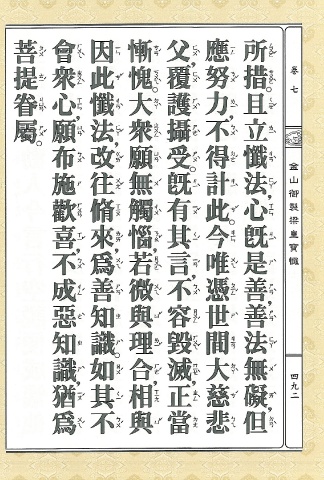 卷七
金山御製梁皇寶懺
四九二
所措且立懺法心旣是善善法無礙但
應努力不得計此今唯憑世間大慈悲
父覆護攝受旣有其言不容毀滅正當
慚愧大衆願無觸惱若微與理合相與
因此懺法改往脩來爲善知識如其不
會衆心願布施歡喜不成惡知識猶爲
菩提眷屬